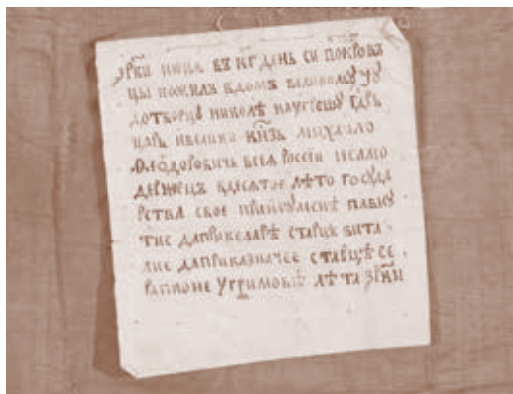 ЗРКИ июня въ КГ день си покровъ
цы положилъ вдомъ великому чю
дотворцѣ николѣ наугрешу гдрь
царь ивелики кнзь михаило
Ѳлодоровичь всеа россии исамо
держецъ вдесятое лѣто госуда
рства свое приигуменѣ
тие даприкеларѣ старцѣ вита
лие даприказначее старцѣ се
рапионе Угримовѣ лѣта ЗРКИ